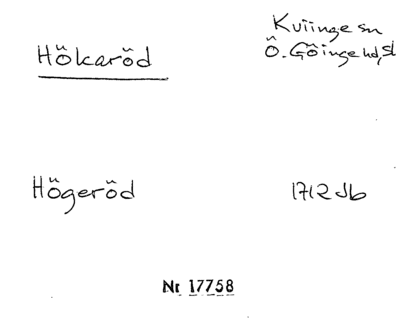 Hökaröd
Kviinge sn
Ö. Göinge hd, sk
Högeröd
1712 Jb
Nr 17758